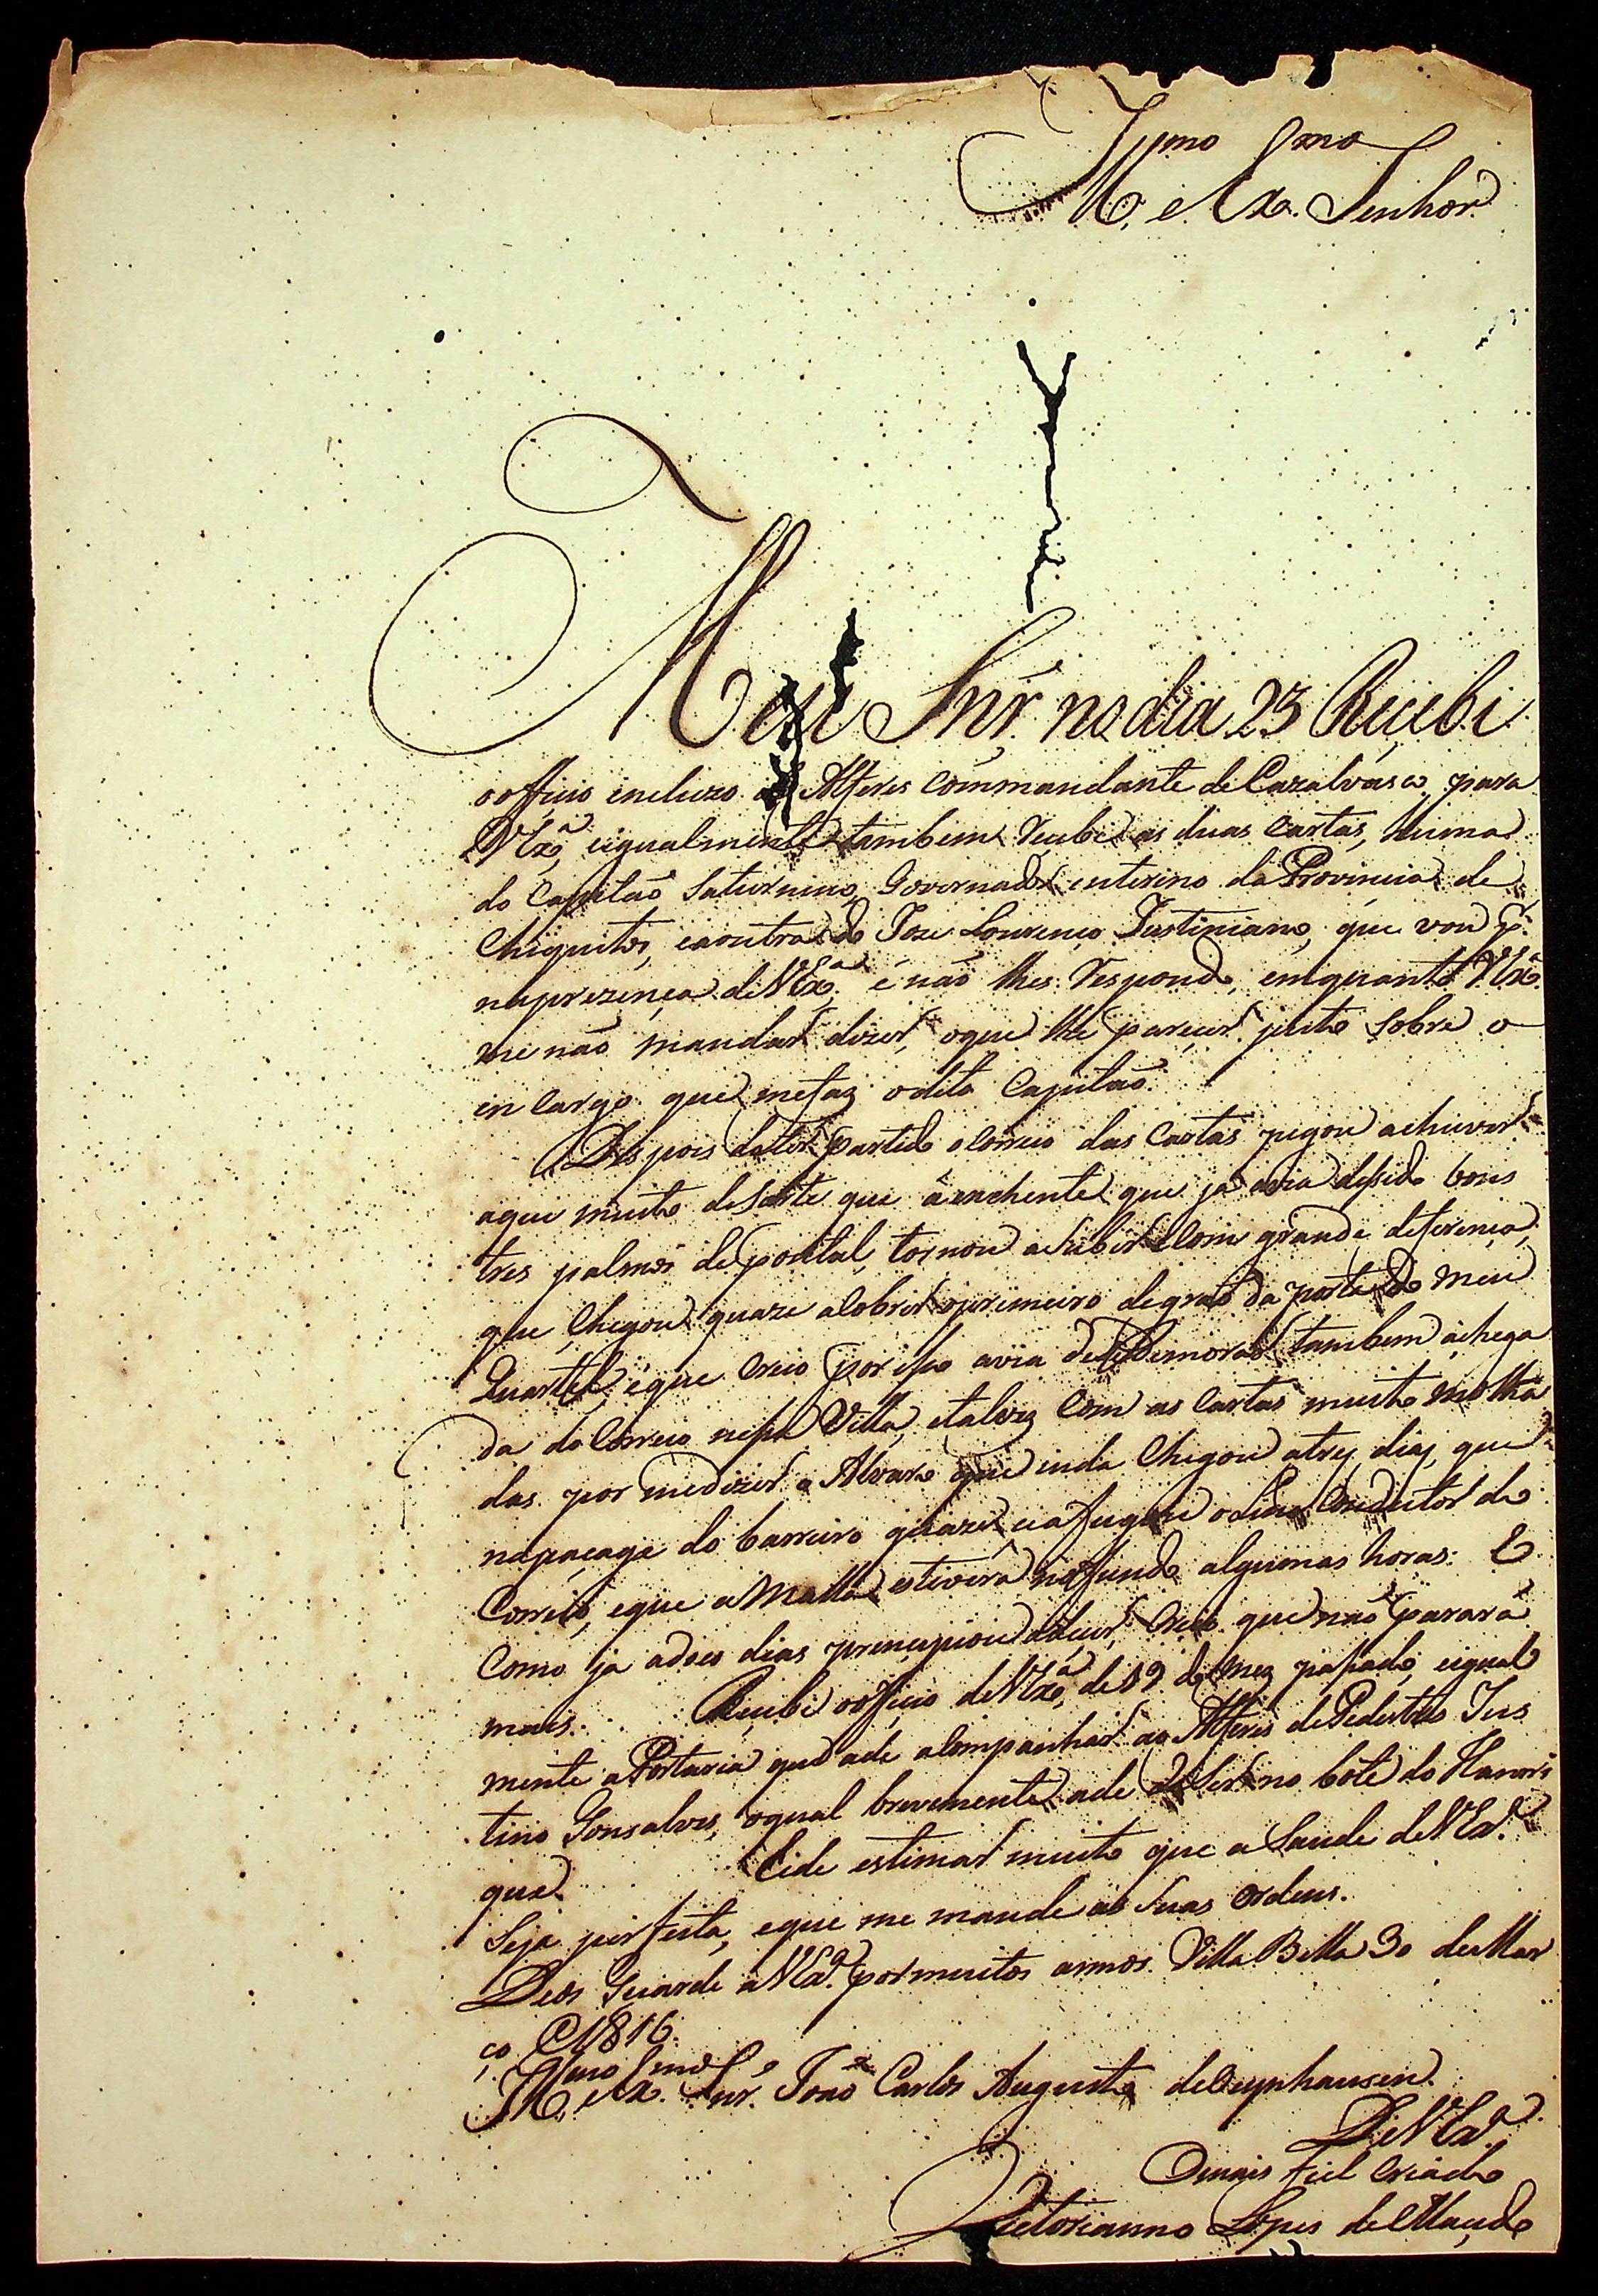 Illmo Exmo Senhor
Meu Snr. no dia 23 Recebi
o officio incluzo do Alferes Commandante de Cazalvasco para
VExa, eigualmente tambem recebi as duas Cartas, huma
do Capitaõ Saturnino, Governador enterino da Provincia de
Chiquitos, eaoutra do Joze Lourenço Justiniano, que vou
naprezença deVExa, é naõ lhes respondo, emquanto VExa
me naõ mandar dizer, oque lhe pareçer justo sobre o
en cargo que mefaz o dito Capitaõ.
Des pois deter partido o Correio das Cartas pegou achuver
aqui muito deSorte que áenchente que ja avia desido bons
tres palmos de pontal, tornou aSubir Com grande deferença,
que Chegou quaze aCobrir oprimeiro degrao da porta do meu
Quartel, éque Creio por isso avia de demorar tambem áchega
da do Correio nessa Villa, etalvez Com as Cartas muito molha
das por medizer o Alvaro que inda Chegou atrez diaz, que
napaçage do barreiro quaze ca fugou o Conductor do
Correio, eque a Malla estivera nofundo algumas horas: E
Como ja adois dias prençipiou adeçer, Creio que naõ parará
mais. Recebi oofficio deVExa, de 19 do Mez passado, eigual
mente aPortaria que ade aCompanhar ao Alferes dePedestres Jus
tino Gonsalves, oqual brevemente ade deSer no bote do Manoel
que. Eide estimar muito que a Saude deVExa
Seja perfeita, eque me mande as Suas Ordens.
Deos Guarde aVExa por muitos annos. Villa Bella 30 deMar
ço @ 1816.
Illmo Exmo Snr. Joaõ Carlos Augusto deOeynhausen.
DeVExa
Omais fiel Criado
Victorianno Lopes deMacedo